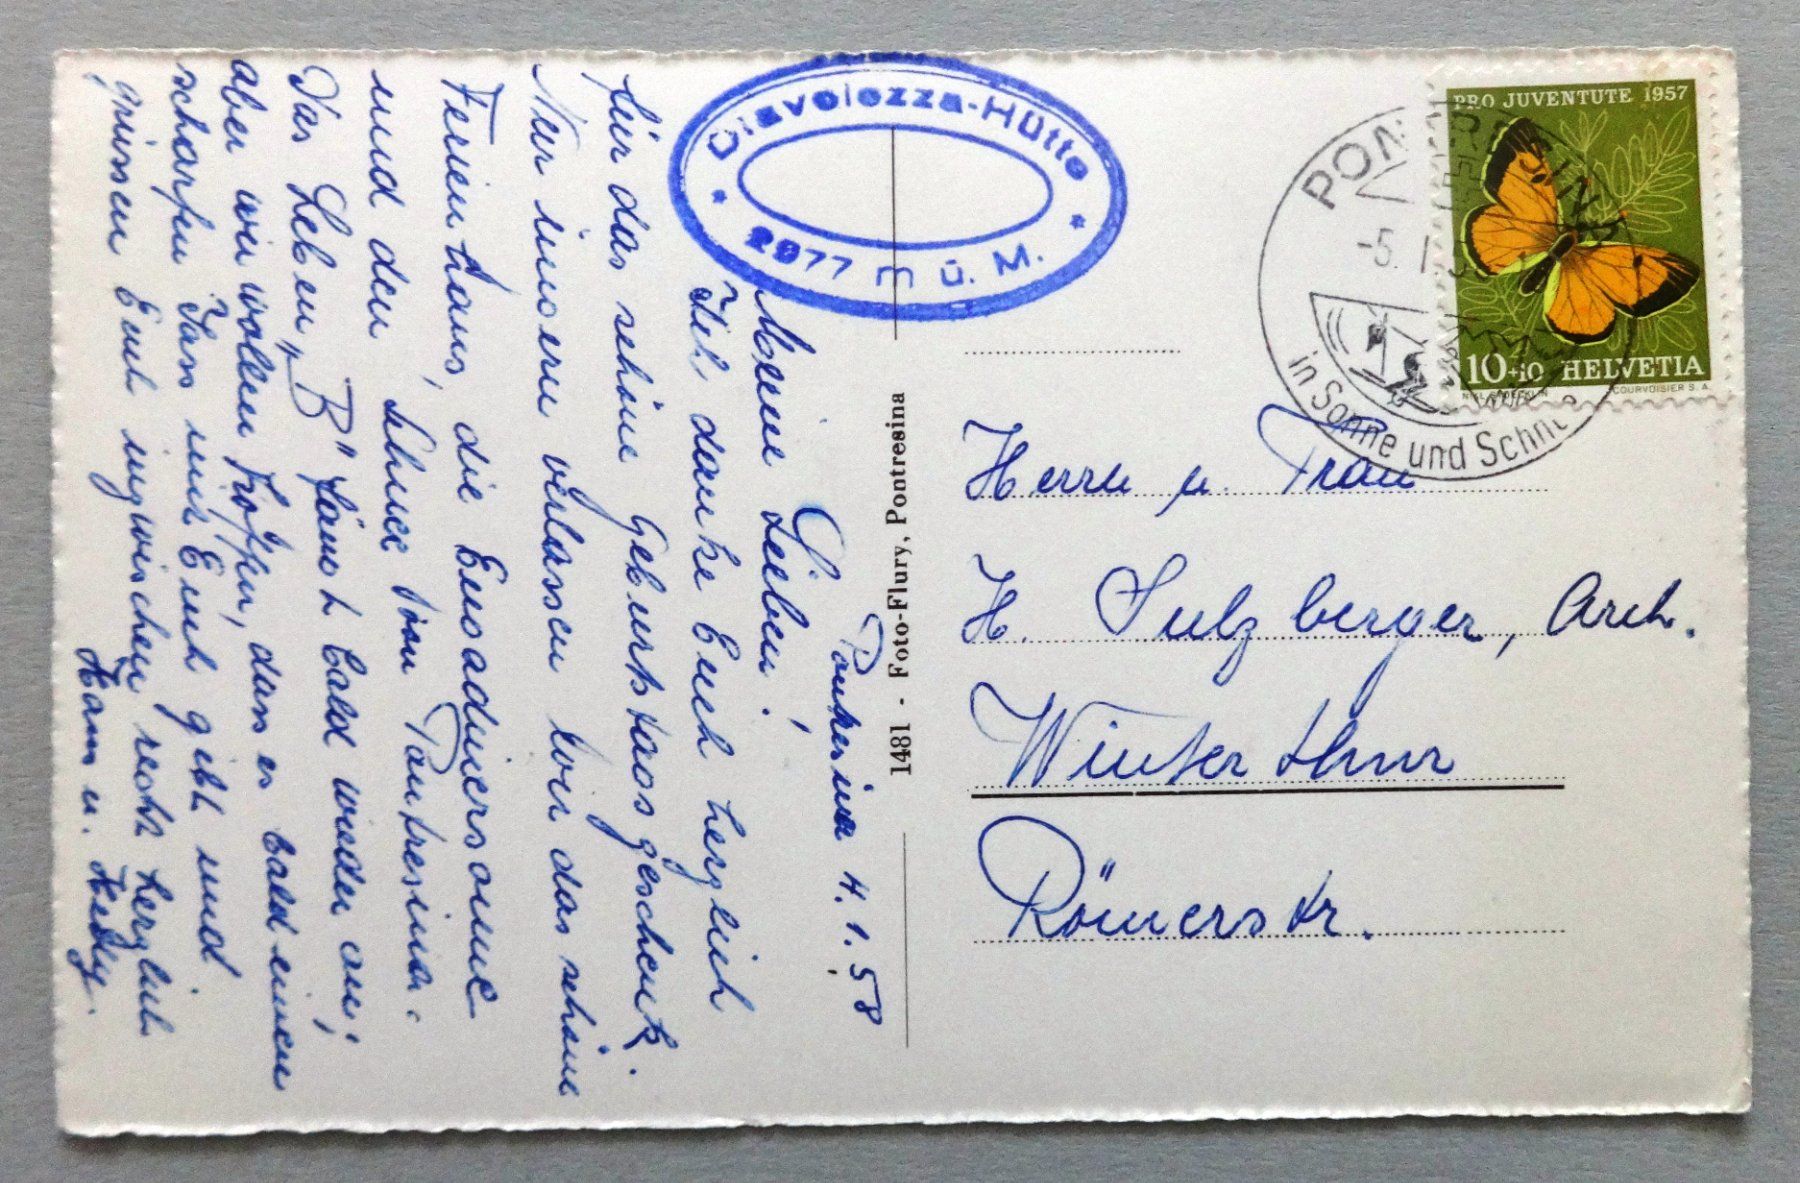 Diavolezza-Hütte
2977 m ü. M.
Pontresina 4.1.58
Meine Lieben!
Ich danke Euch herzlich
für das schöne Geburtstagsgeschenk.
Nur ungern verlassen wir das schöne
Ferienhaus, die Engadinersonne
und den Schnee von Pontresina.
Das Leben „B“ fängt bald wieder an;
aber wir wollen hoffen, dass es bald einen
scharfen Jass mit Euch gibt und
grüssen Euch inzwischen recht herzlich
Hans u. Hedy.
1481 - Foto-Flury, Pontresina
PRO JUVENTUTE 1957
10+10 HELVETIA
COURVOISIER S.A.
PONTRESINA
-5. I. 58
in Sonne und Schnee
Herrn u. Frau
H. Sulzberger, Arch.
Winterthur
Römerstr.